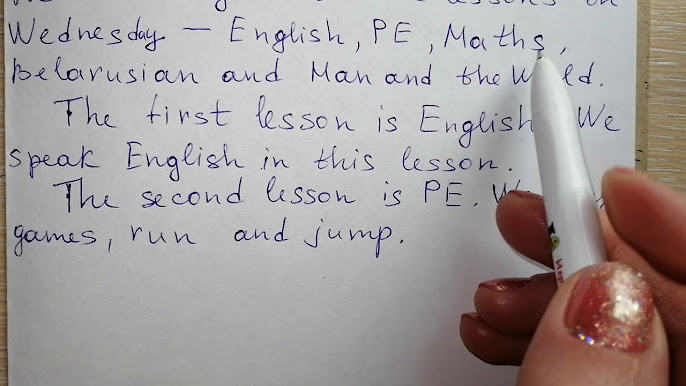 lessons on
Wednesday - English, PE, Maths,
Belarusian and Man and the World.
The first lesson is English. We
speak English in this lesson.
The second lesson is PE.
games, run and jump.